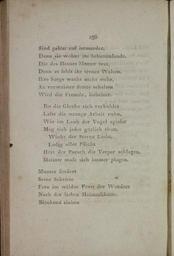 156
Sind gehter und immerdar,
Denn sie wohnt im Schattenlande,
Die des Hauses Mutter war,
Denn es fehlt ihr treues Walten,
Ihre Sorge wacht nicht mehr,
An verwaister Stätte schalten
Wird die Fremde, liebeleer.
Bis die Glocke sich verkühlet
Laßt die strenge Arbeit ruhn,
Wie im Laub der Vogel spielet
Mag sich jeder gütlich thun.
Winkt der Sterne Licht,
Ledig aller Pflicht
Hört der Pursch die Vesper schlagen,
Meister muß sich immer plagen.
Munter fördert
Seine Schritte
Fern im wilden Forst der Wandrer
Nach der lieben Heimathütte.
Blöckend ziehen